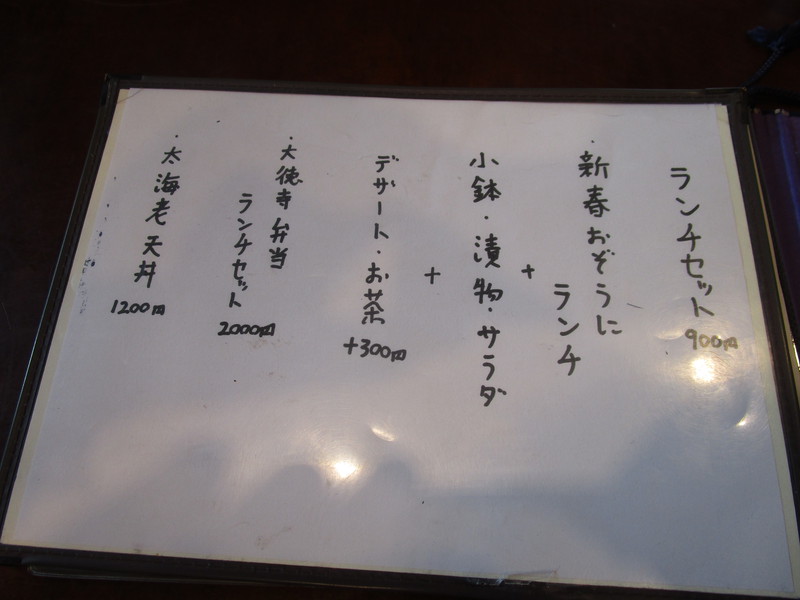 ランチセット
900円
・新春おぞうに
ランチ
+
小鉢・漬物・サラダ
+
デザート・お茶
+300円
・大徳寺弁当
ランチセット
2000円
・大海老天丼
1200円